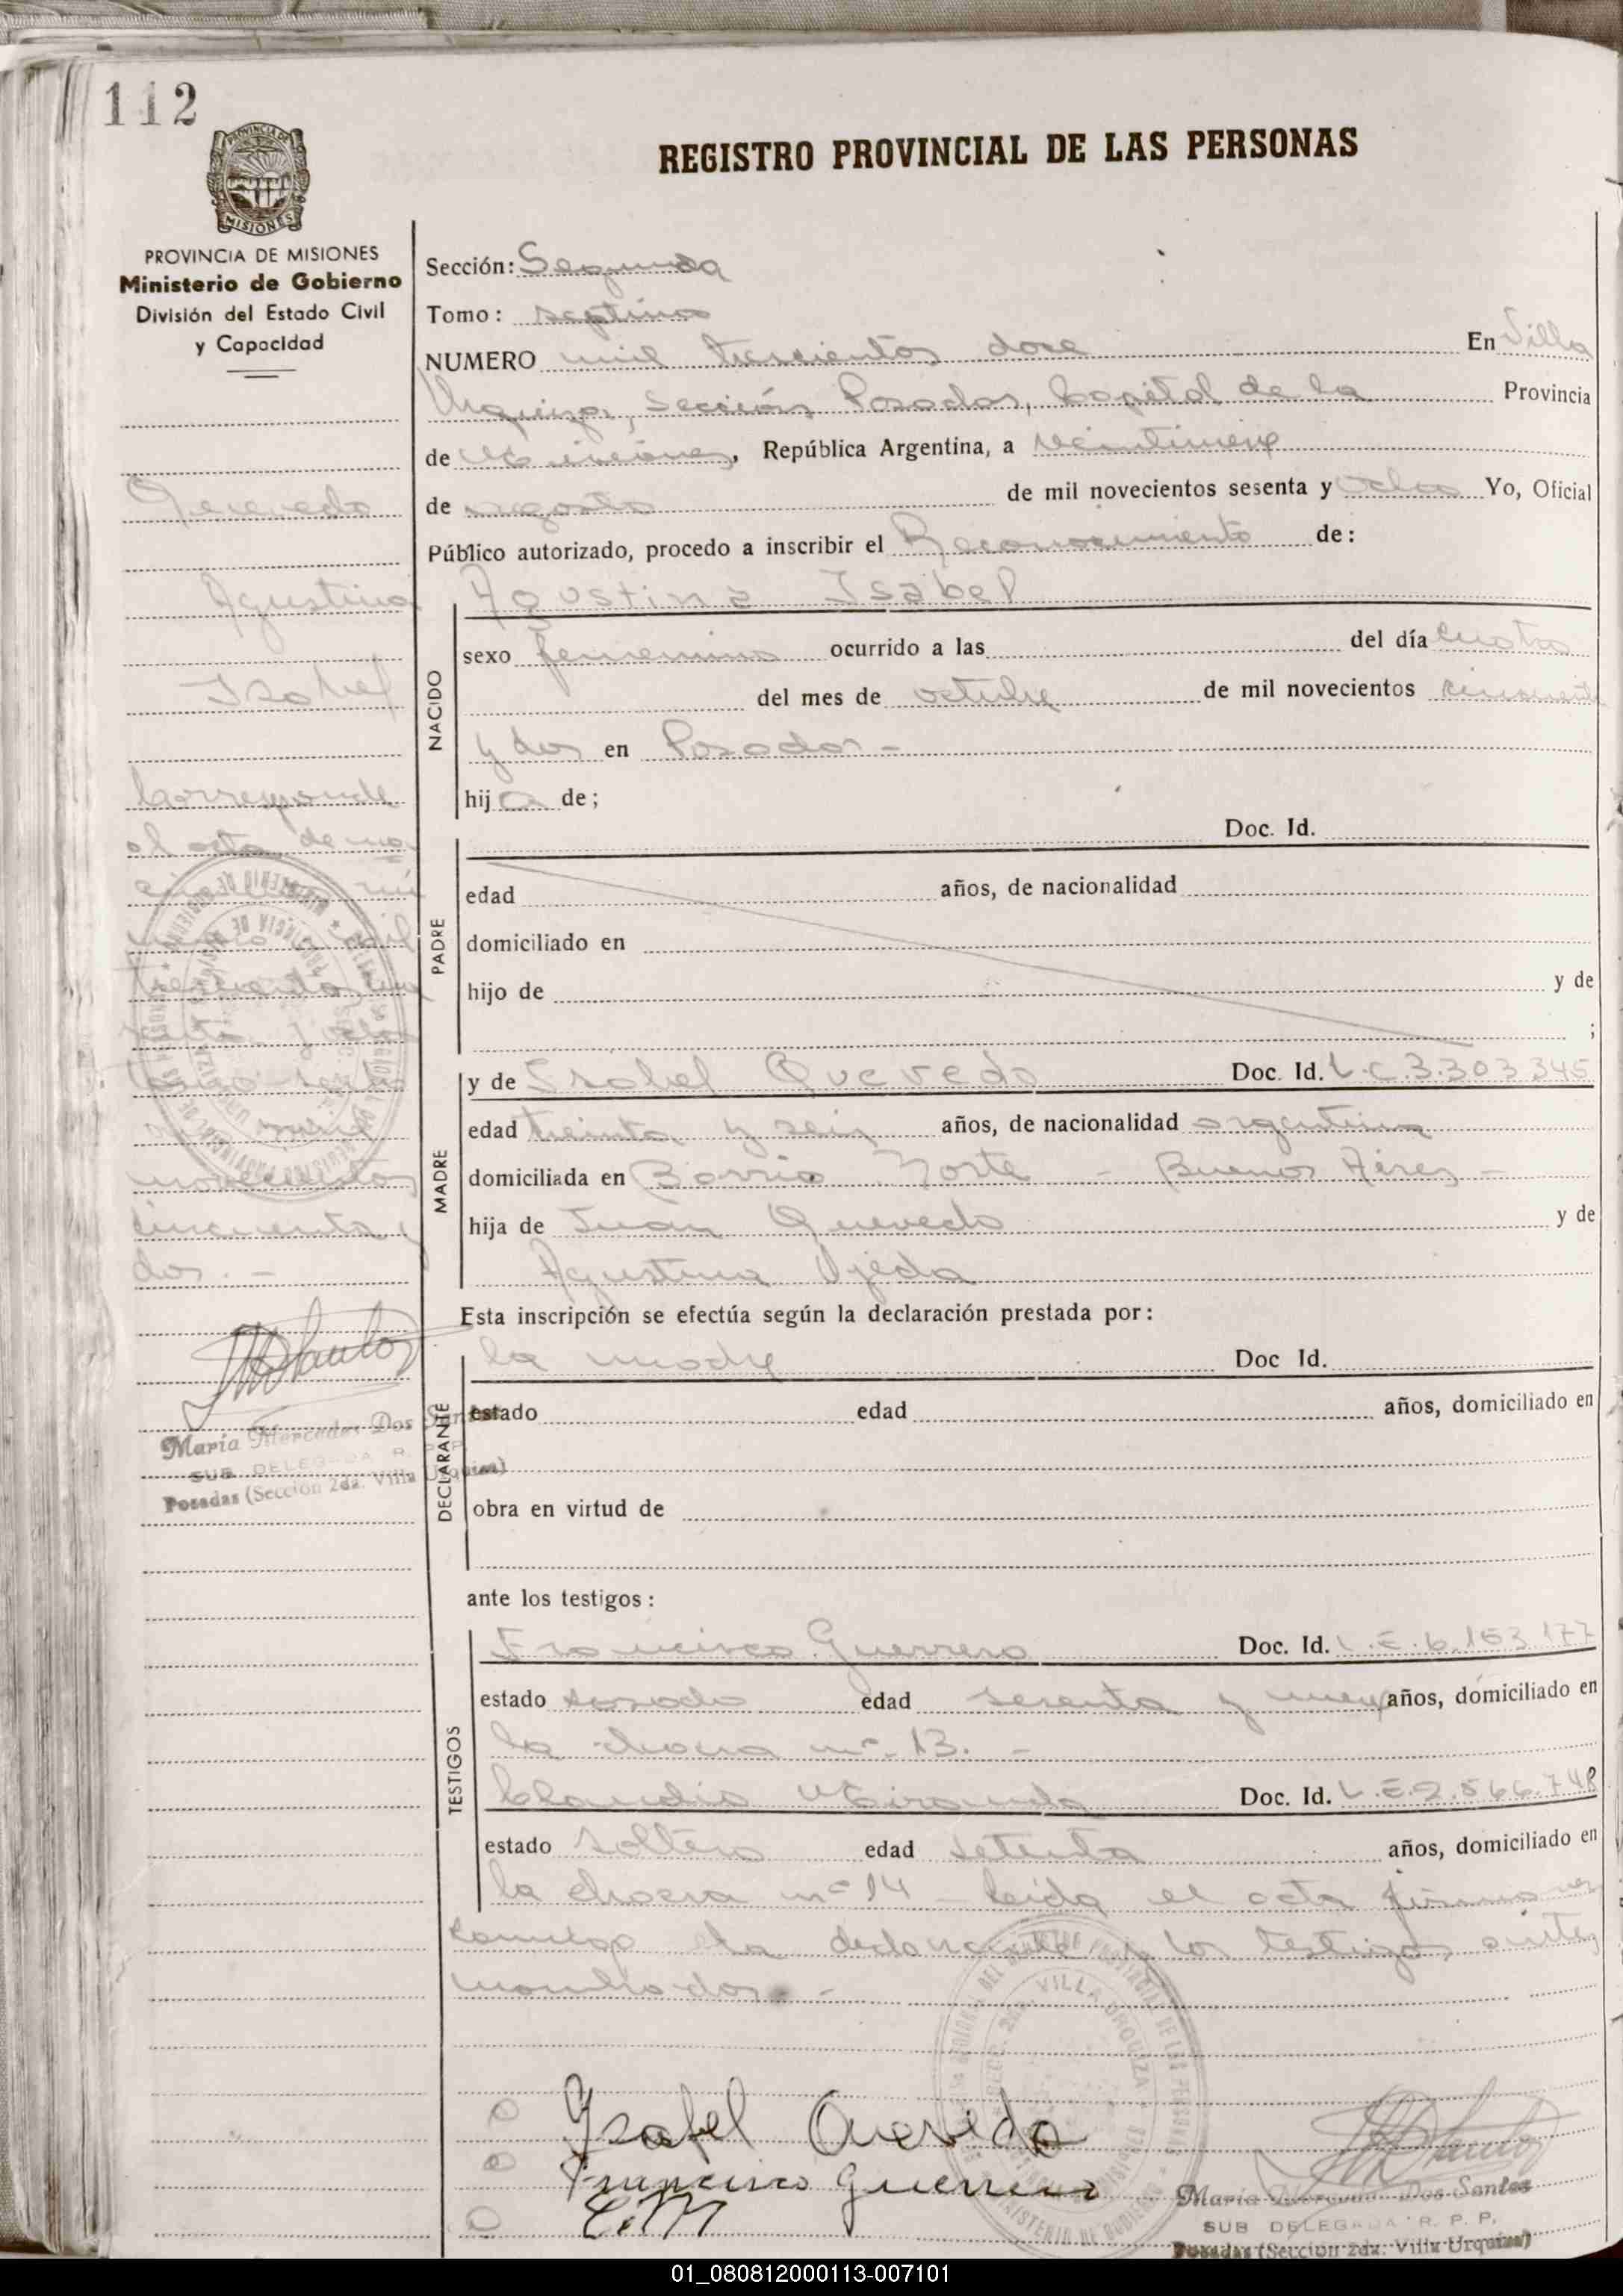 112
REGISTRO PROVINCIAL DE LAS PERSONAS
PROVINCIA DE
MISIONES
PROVINCIA DE MISIONES
Ministerio de Gobierno
División del Estado Civil
y Capacidad
Quevedo
Agustina
Isabel
Corresponde
al acta de na
cimiento nú
mero mil
trescientos cin
cuenta y ocho
tomo sexto
mil
novecientos
cincuenta y
dos. -
María Mercedes Dos Santos
SUB DELEGADA R. P. P.
Posadas (Sección 2da. Villa Urquiza)
Sección: Segunda
Tomo: septimo
NUMERO mil trescientos doce En Villa
Urquiza, Sección Posadas, Capital de la Provincia
de Misiones, República Argentina, a veintinueve
de agosto de mil novecientos sesenta y ocho Yo, Oficial
Público autorizado, procedo a inscribir el Reconocimiento de:
Agustina Isabel
NACIDO
sexo femenino ocurrido a las del día cuatro
del mes de octubre de mil novecientos cincuenta
y dos en Posadas -
hija de;
PADRE
Doc. Id.
edad años, de nacionalidad
domiciliado en
hijo de y de
;
MADRE
y de Isabel Quevedo Doc. Id. L.C.3.303.345
edad treinta y seis años, de nacionalidad argentina
domiciliada en Barrio Norte - Buenos Aires -
hija de Juan Quevedo y de
Agustina Ojeda
Esta inscripción se efectúa según la declaración prestada por:
DECLARANTE
la madre Doc Id.
estado edad años, domiciliado en
obra en virtud de
ante los testigos:
TESTIGOS
Francisco Guerrero Doc. Id. L.E.6.153.177
estado casado edad sesenta y nueve años, domiciliado en
la chacra nº 13. -
Claudio Miranda Doc. Id. L.E.2.566.748
estado soltero edad setenta años, domiciliado en
la chacra nº 14 - Leída el acta firman
conmigo la declarante y los testigos antes
nombrados. -
VILLA URQUIZA
Isabel Quevedo
Francisco Guerrero
C.M
María Mercedes Dos Santos
SUB DELEGADA R. P. P.
Posadas (Sección 2da. Villa Urquiza)
01_080812000113-007101